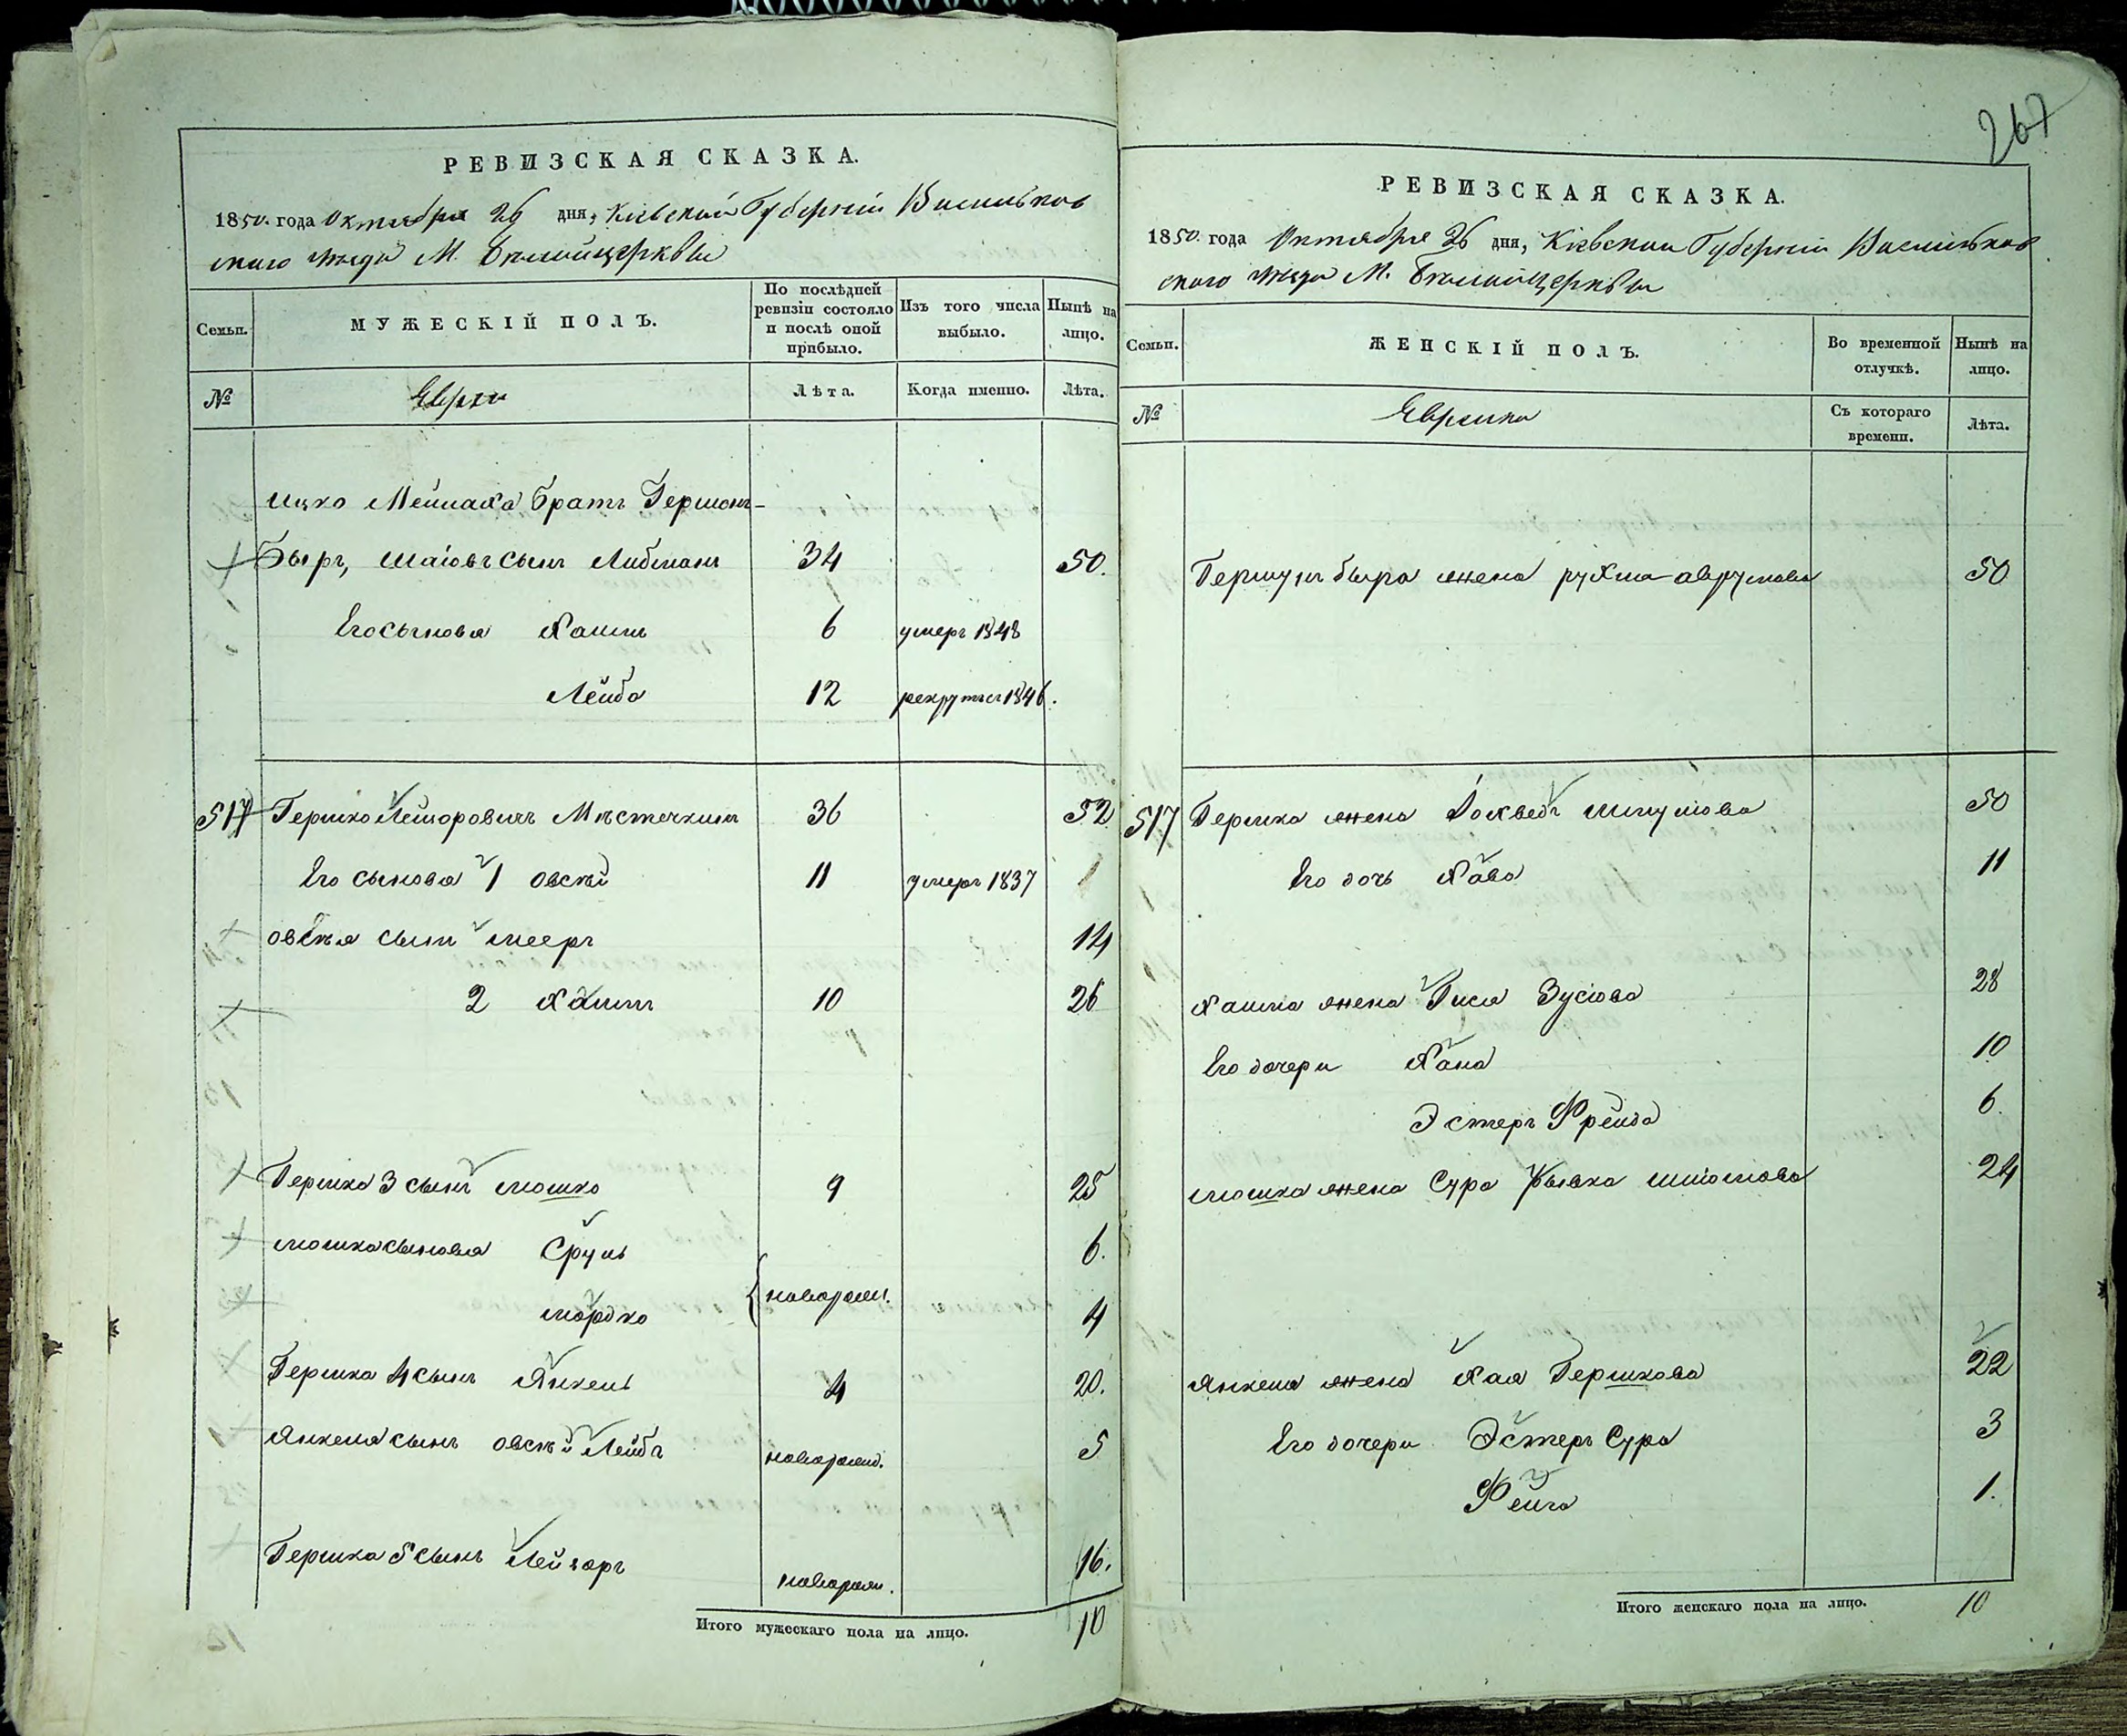 267
РЕВИЗСКАЯ СКАЗКА.
1850. года Октября 26 дня, Кіевской Губерніи Васильков
скаго уезда М. Белойцеркви
Семьи.
МУЖЕСКІЙ ПОЛЪ.
По послѣдней ревизіи состояло и послѣ оной прибыло.
Изъ того числа выбыло.
Нынѣ на лицо.
№
Евреи
Лѣта.
Когда именно.
Лѣта.
Ицко Мейлаха братъ Гершонъ-
Быръ, Шаіовъ сынъ Либманъ 34 50.
Его сыновья Хаимъ 6 умеръ 1848
Лейба 12 рекрутъ 1846.
517 Гершко Лейзоровичъ Местечкинъ 36 52
Его сыновья 1 Овсѣй 11 умеръ 1837
Овсѣя сынъ Мееръ 14
2 Хаимъ 10 26
Гершка 3 сынъ Мошко 9 25
Мошка сыновья Сруль 6.
Мордко новорожд. 4
Гершка 4 сынъ Янкель 4 20.
Янкеля сынъ Овсѣй Лейбъ новорожд. 5
Гершка 5 сынъ Лейзоръ новорожд. 16.
Итого мужескаго пола на лицо. 10
РЕВИЗСКАЯ СКАЗКА.
1850. года Октября 26 дня, Кіевской Губерніи Васильков
скаго уезда М. Белойцеркви
Семьи.
ЖЕНСКІЙ ПОЛЪ.
Во временной отлучкѣ.
Нынѣ на лицо.
№
Еврейки
Съ котораго времени.
Лѣта.
Гершунъ Быра жена Рухма Аврумова 50
517 Гершка жена Іохведъ Шмулова 50
Его дочь Хава 11
Хаима жена Гися Зусіова 28
Его дочери Хана 10
Эстеръ Фрейда 6.
Мошка жена Сура Рывка Шліомова 24
Янкеля жена Хая Гершкова 22
Его дочери Эстеръ Сура 3
Фейга 1.
Итого женскаго пола на лицо. 10